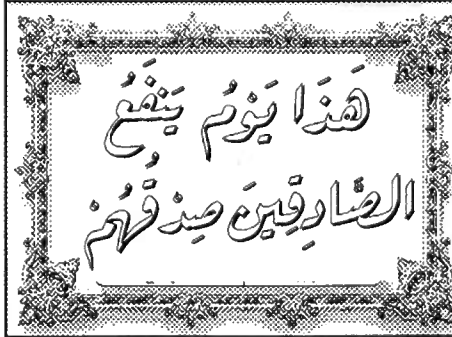 هَذَا يَوْمُ يَنفَعُ
الصَّادِقِينَ صِدْقُهُمْ